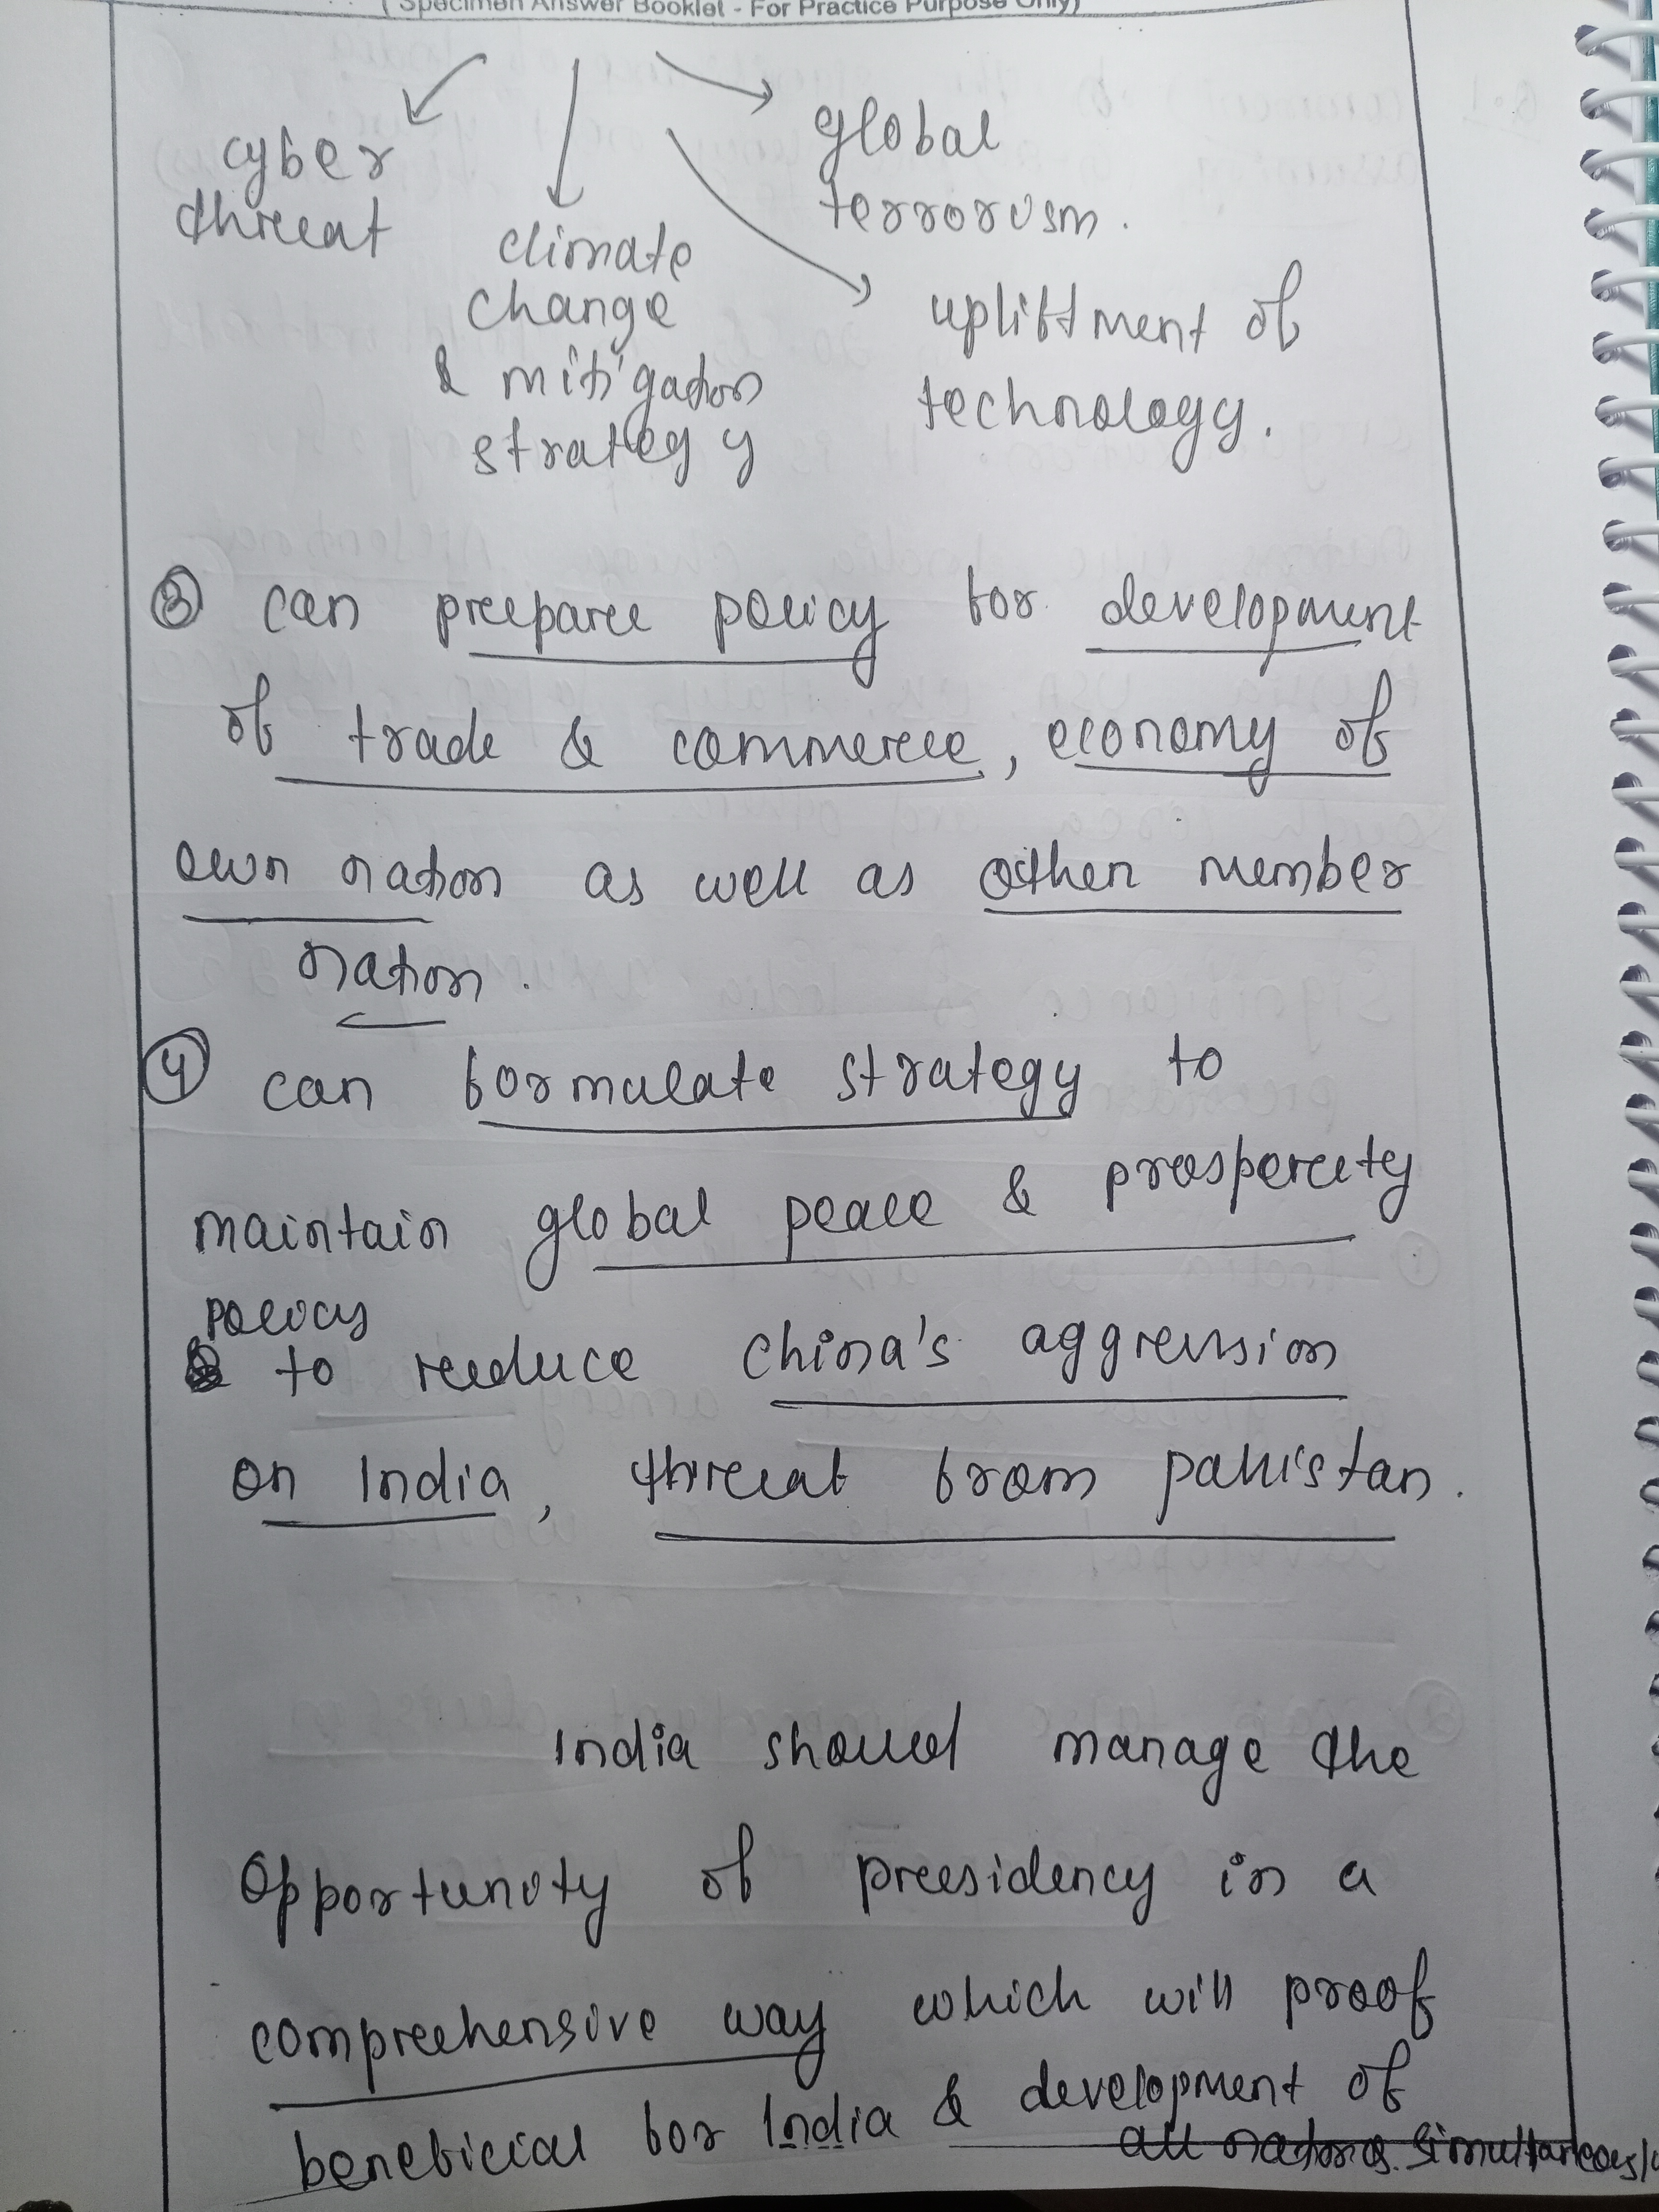 ( Specimen Answer Booklet - For Practice Purpose Only)
cyber
threat
climate
change
& mitigation
strategy
global
terrorism.
upliftment of
technology.
③ can preepare policy for development
of trade & commerece, economy of
own nation as well as other member
nation.
④ can formulate strategy to
maintain global peace & prosperity
policy
to reeduce China's aggression
on India, threat from pakistan.
India should manage the
opportunity of preesidency in a
compreehensive way which will proof
beneficial for India & development of
all nations simultaneously